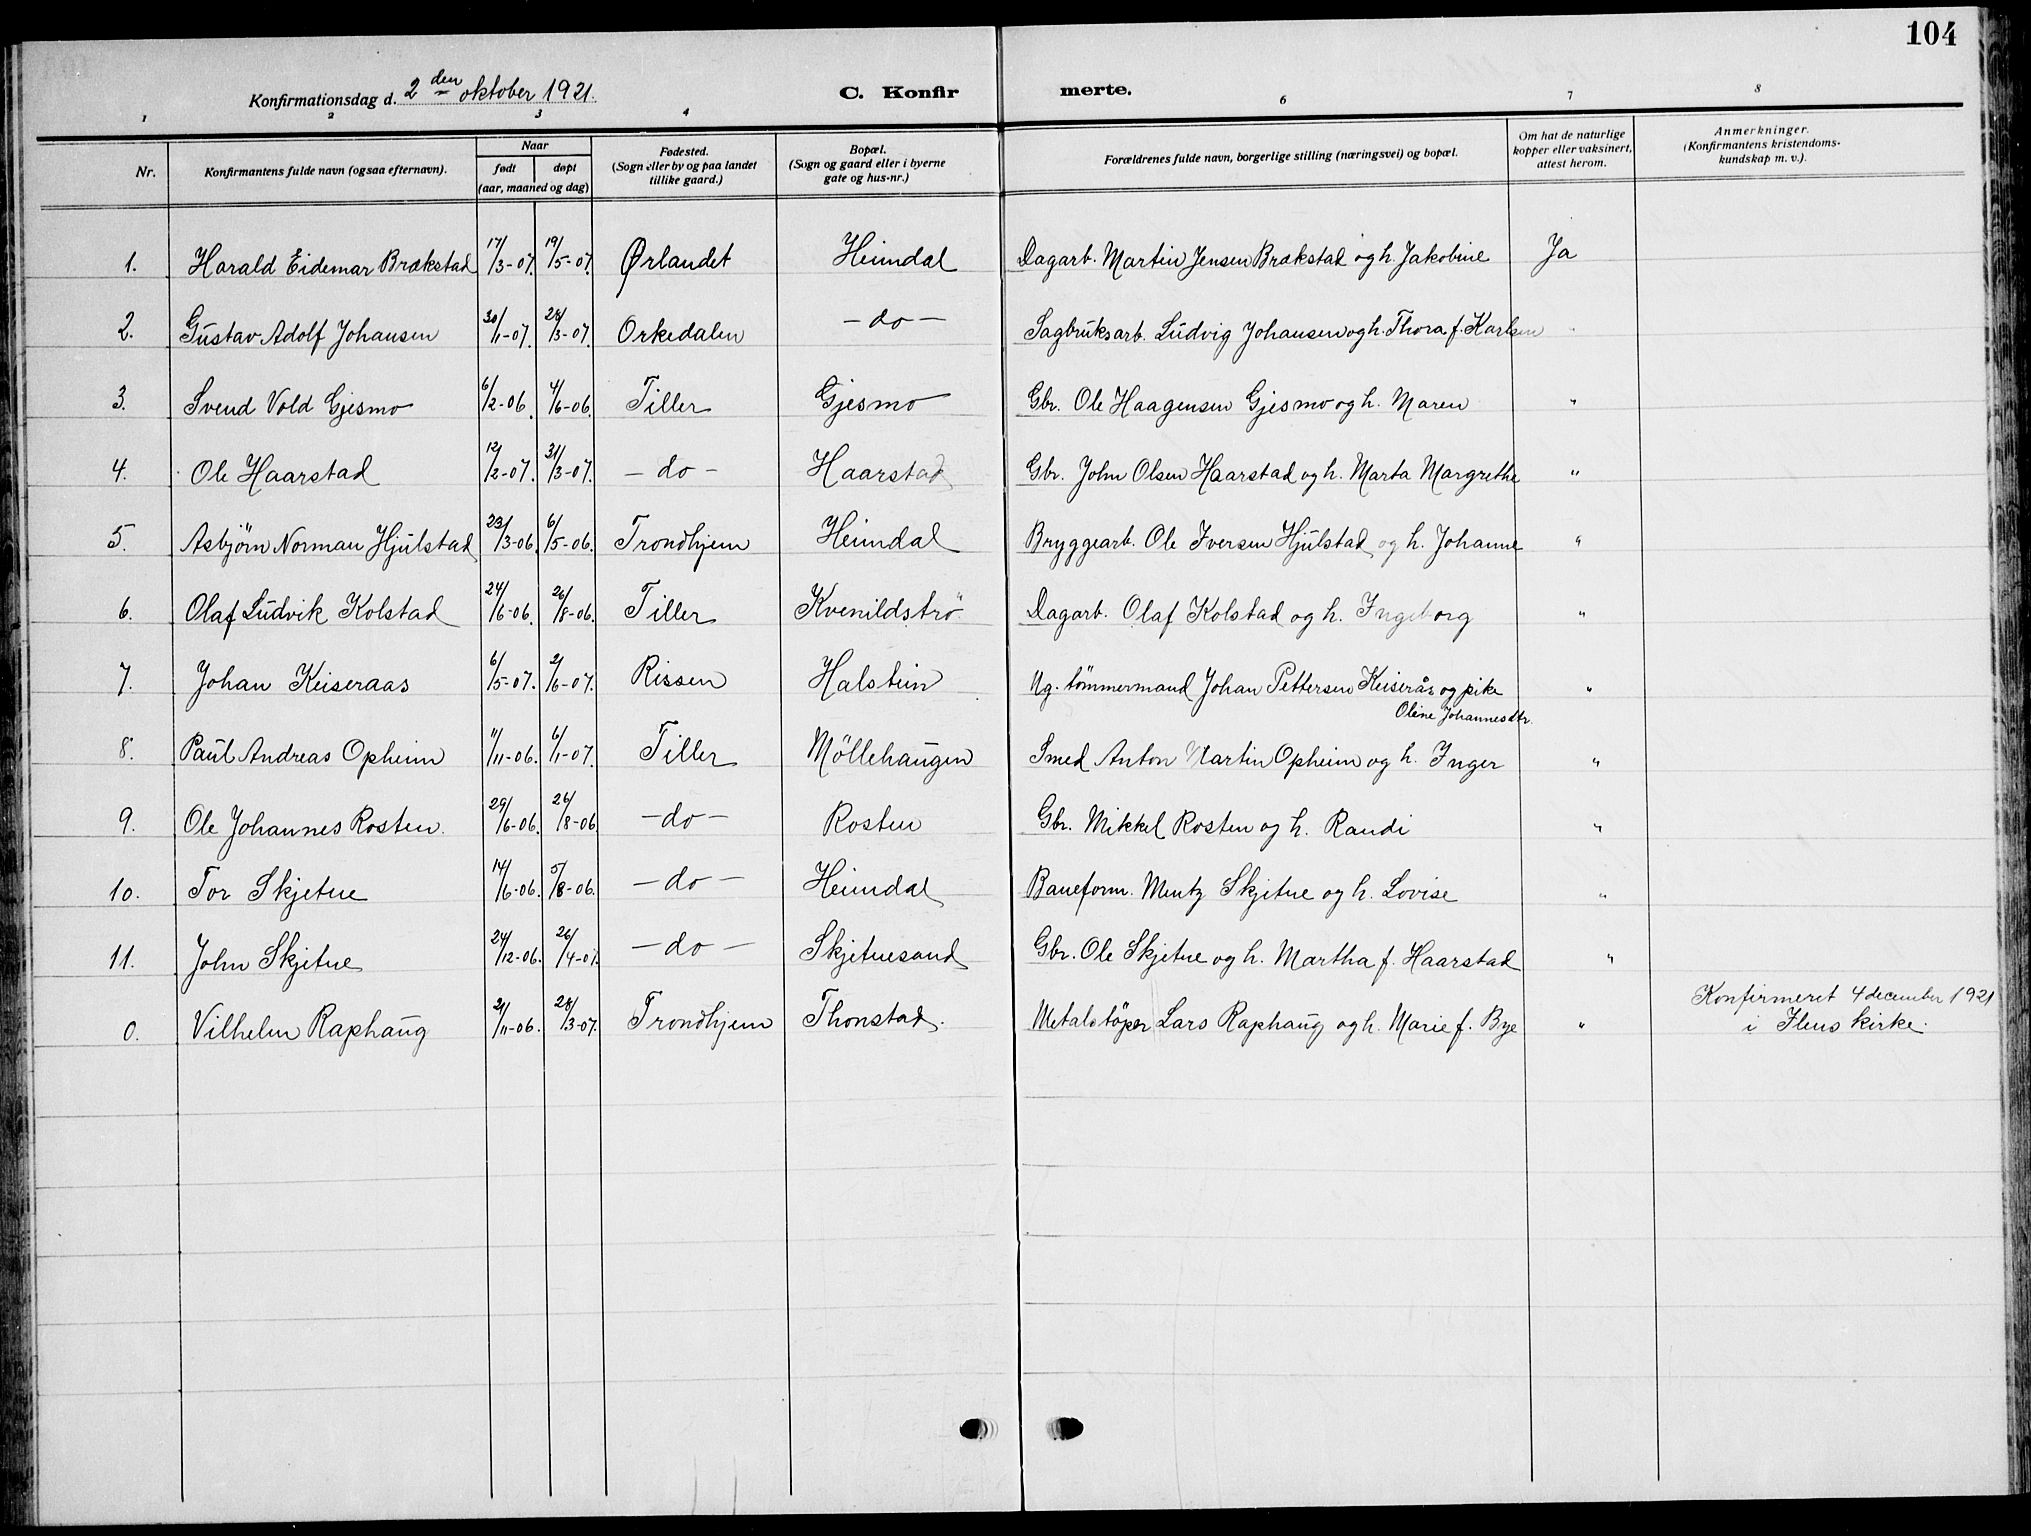 104
Konfirmationsdag d. 2den oktober 1921. C. Konfir merte.
1 2 3 4 6 7 8
Nr. Konfirmantens fulde navn (ogsaa efternavn). Naar født døpt (aar, maaned og dag) Fødested. (Sogn eller by og paa landet tillike gaard.) Bopæl. (Sogn og gaard eller i byerne gate og hus-nr.) Forældrenes fulde navn, borgerlige stilling (næringsvei) og bopæl. Om hat de naturlige kopper eller vaksinert, attest herom. Anmerkninger. (Konfirmantens kristendoms-kundskap m. v.).
1. Harald Eidemar Brækstad 17/3-07. 19/5-07. Ørlandet Heimdal Dagarb. Martin Jensen Brækstad og h. Jakobine Ja
2. Gustav Adolf Johansen 30/1-07. 28/3-07. Orkedalen - do - Sagbruksarb. Ludvig Johansen og h. Thora f. Karlsen "
3. Svend Vold Gjesmo 6/2-06. 4/6-06. Tiller Gjesmo Gbr. Ole Haagensen Gjesmo og h. Maren "
4. Ole Haarstad 12/2-07. 31/3-07. - do - Haarstad Gbr. John Olsen Haarstad og h. Marta Margrethe "
5. Asbjörn Norman Hjulstad 23/3-06. 6/5-06. Trondhjem Heimdal Bryggearb. Ole Iversen Hjulstad og h. Johanne "
6. Olaf Ludvik Kolstad 24/6-06. 26/8-06. Tiller Kvenildströ Dagarb. Olaf Kolstad og h. Ingeborg "
7. Johan Keiseraas 6/5-07. 2/6-07. Rissen Halstein Ug. tömmermand Johan Pettersen Keiserås og pike "
Oline Johannesdtr.
8. Paul Andreas Opheim 11/11-06. 6/1-07. Tiller Möllehaugen Smed Anton Martin Opheim og h. Inger "
9. Ole Johannes Rosten. 29/6-06. 26/8-06 - do - Rosten Gbr. Mikkel Rosten og h. Randi "
10. Tor Skjetne 14/6-06. 5/8-06. - do - Heimdal Baneform. Mentz Skjetne og h. Lovise "
11. John Skjetne 24/12-06. 26/4-07. - do - Skjetnesand Gbr. Ole Skjetne og h. Martha f. Haarstad "
0. Vilhelm Raphaug 21/11-06. 28/3-07. Trondhjem Thonstad. Metalstöper Lars Raphaug og h. Marie f. Bye " Konfirmeret 4 december 1921
i Ilens kirke.